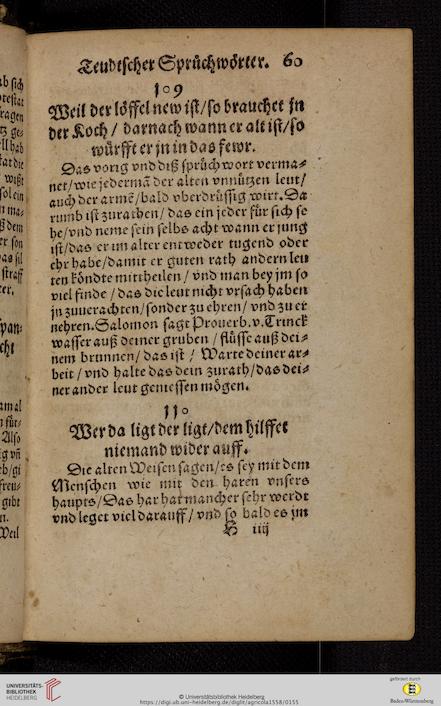 Teudtscher Sprüchwörter. 60
109
Weil der löffel new ist/so brauchet jn
der Koch / darnach wann er alt ist/so
würfft er jn in das fewr.
Das vorig vnd diß sprüchwort verma⸗
net/wie jedermã der alten vnnützen leut/
auch der armẽ/bald vberdrüssig wirt. Da
rumb ist zurathen/ das ein jeder für sich se
he/vnd neme sein selbs acht wann er jung
ist/das er im alter entweder tugend oder
ehr habe/damit er guten rath andern leu
ten köndte mittheilen / vnd man bey jm so
viel finde / das die leut nicht vrsach haben
jn zuuerachten/sonder zu ehren/ vnd zu er
nehren. Salomon sagt Prouerb.v. Trinck
wasser auß deiner gruben / flüsse auß dei⸗
nem brunnen/ das ist / Warte deiner ar⸗
beit / vnd halte das dein zurath/das dei⸗
ner ander leut geniessen mögen.
110
Wer da ligt der ligt/dem hilffet
niemand wider auff.
Die alten Weisen sagen/es sey mit dem
Menschen wie mit den haren vnsers
haupts/Das har hat mancher sehr werdt
vnd leget viel darauff / vnd so bald es jm
H iiij
UNIVERSITÄTS-
BIBLIOTHEK
HEIDELBERG
© Universitätsbibliothek Heidelberg
https://digi.ub.uni-heidelberg.de/diglit/agricola1558/0155
gefördert durch
Baden-Württemberg